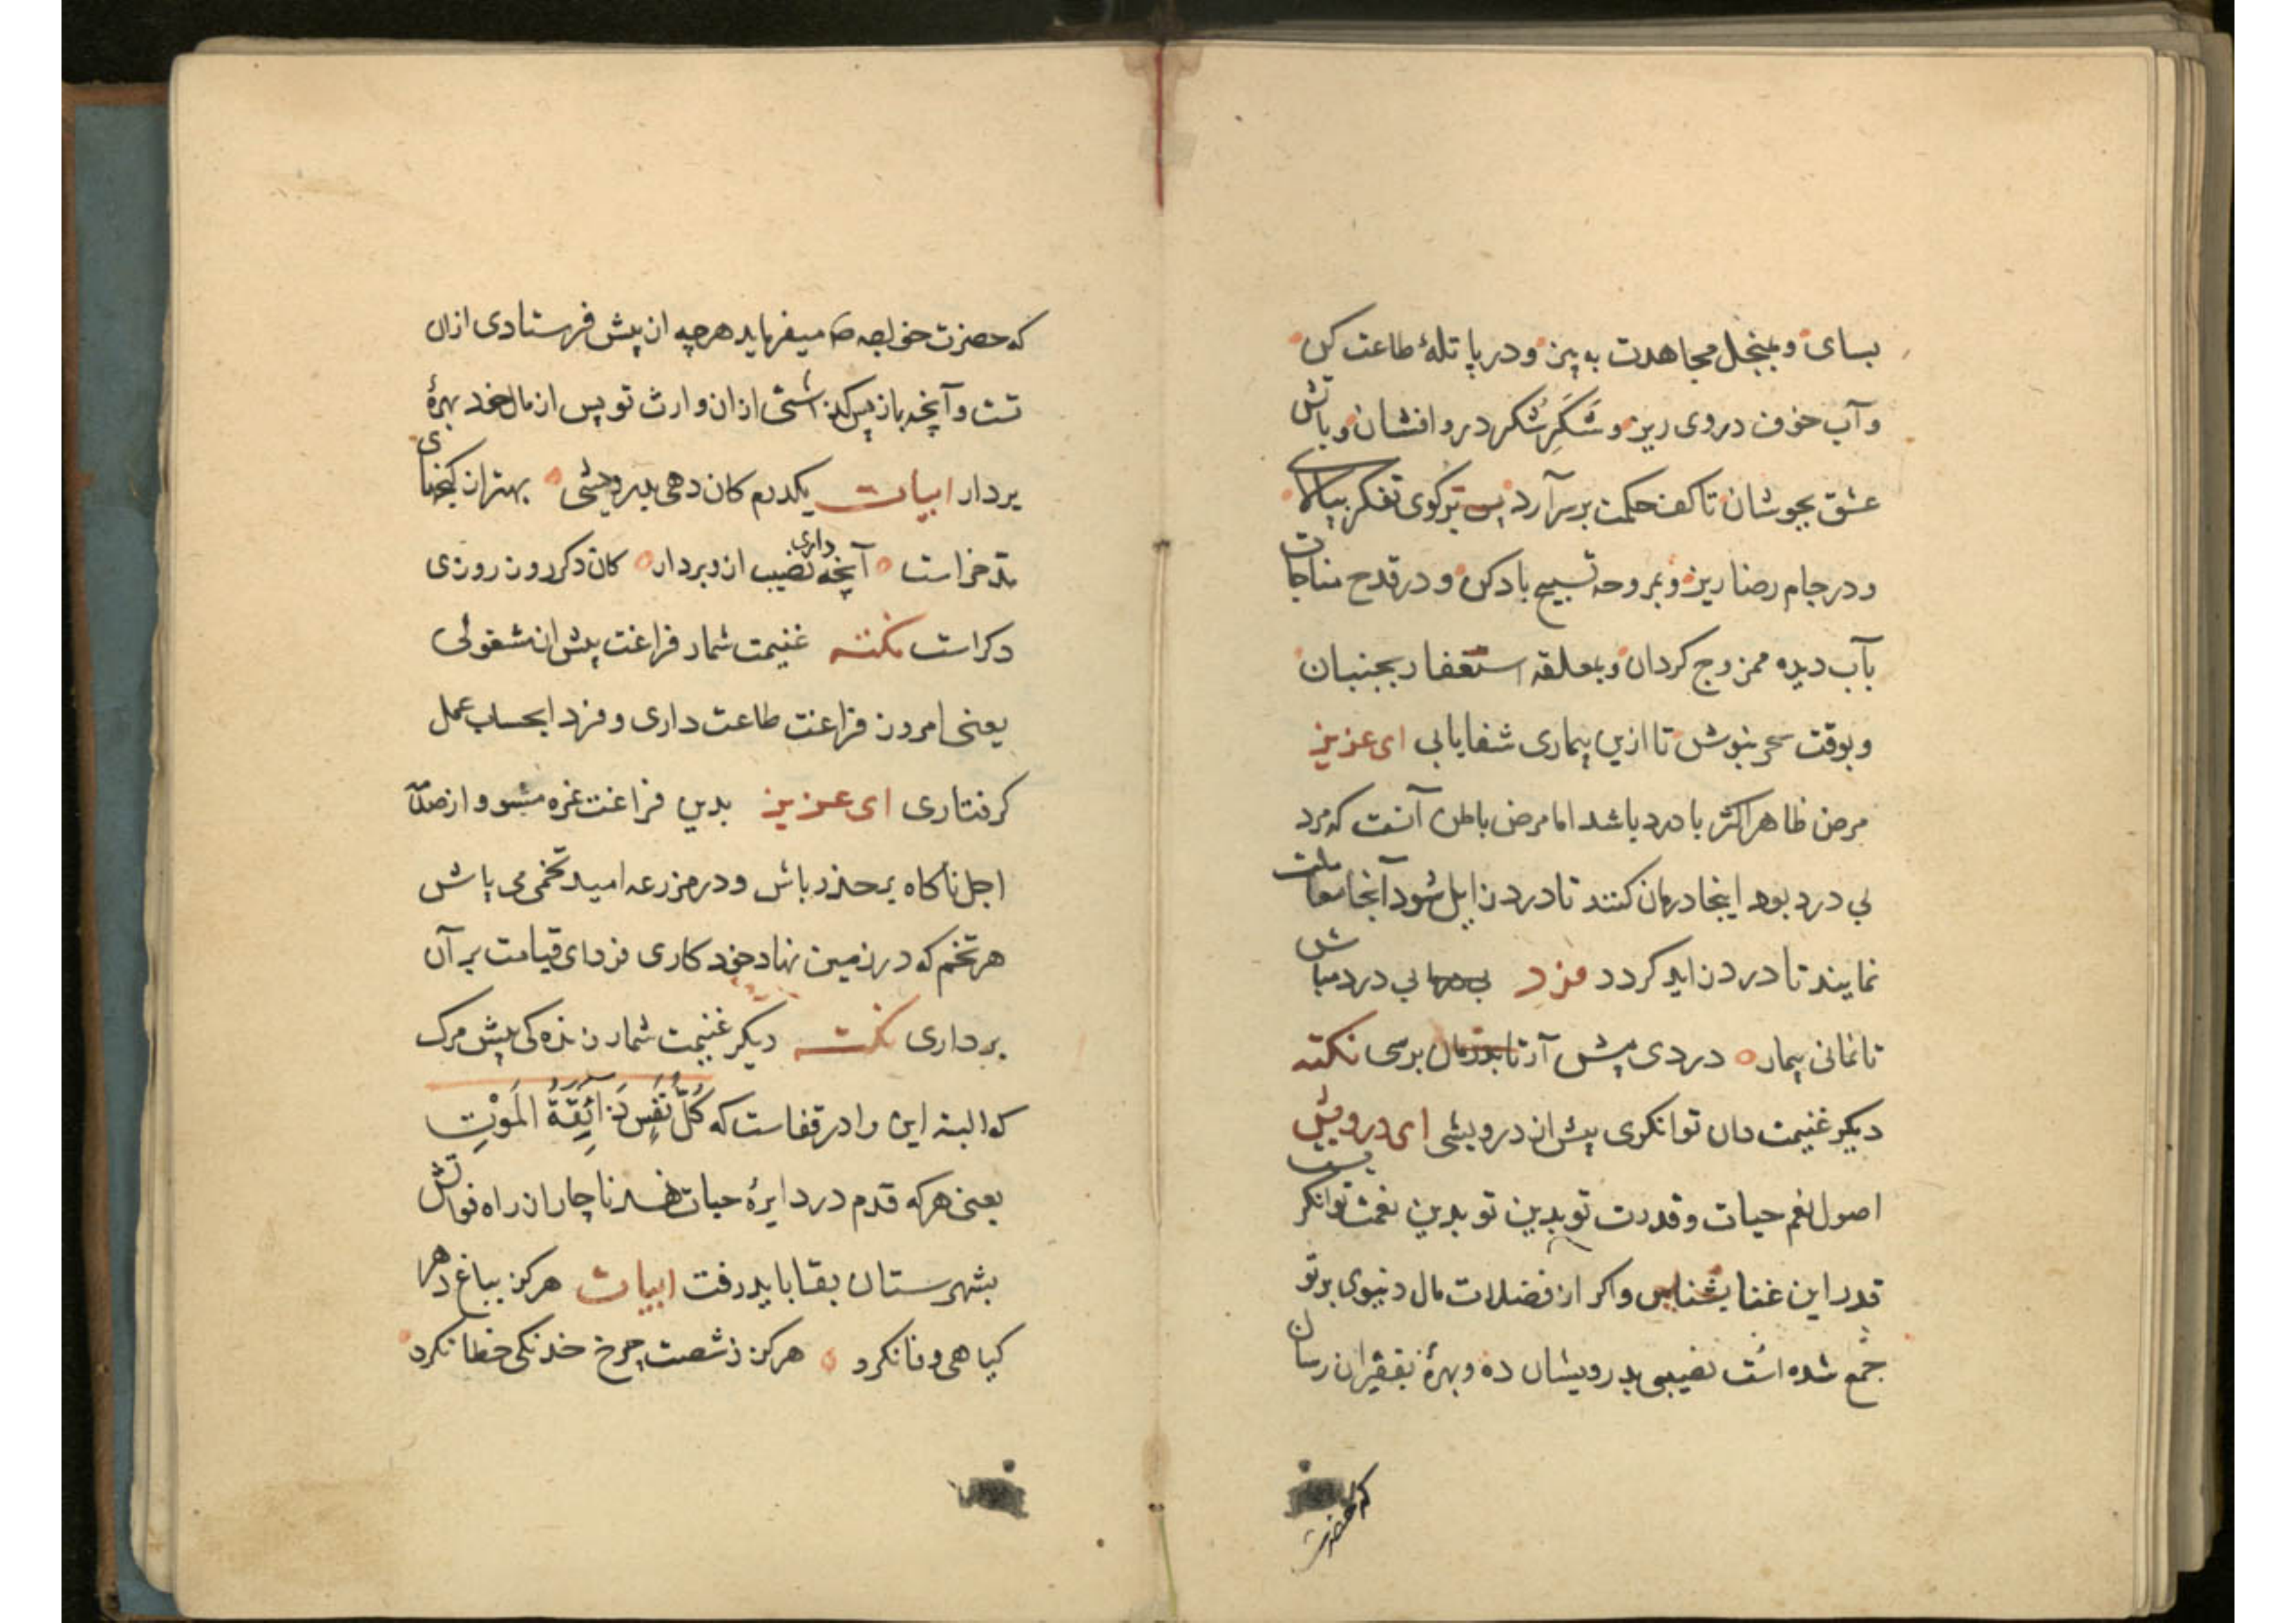 بسای و بمنجل مجاهدت به پز و در پاتلهٔ طاعت کن
و آب خوف در وی ریز و شَکَرِ شُکر در و افشان و باتش
عشق بجوشان تا کف حکمت بر سر آرد پس بر کوی تفکر بپالای
و در جام رضا ریز و بمروحه تسبیح باد کن و در قدح مناجات
بآب دیده ممزوج کردان و بملعقه استغفار بجنبان
و بوقت سحر بنوش تا ازین بیماری شفا یابی ای عزیز
مرض ظاهر اکثر با درد باشد اما مرض باطن آنست که مرد
بی درد بود اینجا درمان کنند تا درد زایل شود آنجا معاملت
نمایند تا درد زاید کردد فرد بی درد مباش
تا نمانی بیمار دردی پیش آر تا بدرمان برسی نکته
دیکر غنیمت دان توانکری پیش از درویشی ای درویش
اصول نعم حیات و قدرت تو بدین تو بدین نعمت توانکر
قدر این غنا بشناس و اکر از فضلات مال دنیوی بر تو
جمع شده است نصیبی بدرویشان ده و بهرهٔ بفقیران رسان
که حضرت
که حضرت خواجه ص میفرماید هرچه از پیش فرستادی ازان
تست و آنچه باز پس گذاشتی ازان وارث تو پس از مال خود بهرهٔ
بردار ابیات یکدرم کان دهی بدرویشی بهتر از کنجهای
مدخر است آنچه داری نصیب ازو بردار کان دکر روز روزی
دکر است نکته غنیمت شمار فراغت پیش از مشغولی
یعنی امروز فراغت طاعت داری و فردا بحساب عمل
کرفتاری ای عزیز بدین فراغت غره مشو و از صدمات
اجل ناکاه بر حذر باش و در مزرعه امید تخمی می پاش
هر تخم که در زمین نهاد خود کاری فردای قیامت بر آن
برداری نکته دیکر غنیمت شمار زنده کی پیش مرک
که البته این را در قفاست که کُلُّ نَفْسٍ ذَائِقَةُ المَوْتِ
یعنی هر که قدم در دایرهٔ حیات نهد ناچار از راه فواتش
بشهرستان بقا باید رفت ابیات هرکز بباغ دهر
کیاهی وفا نکرد هرکز ز شصت چرخ خدنکی خطا نکرد